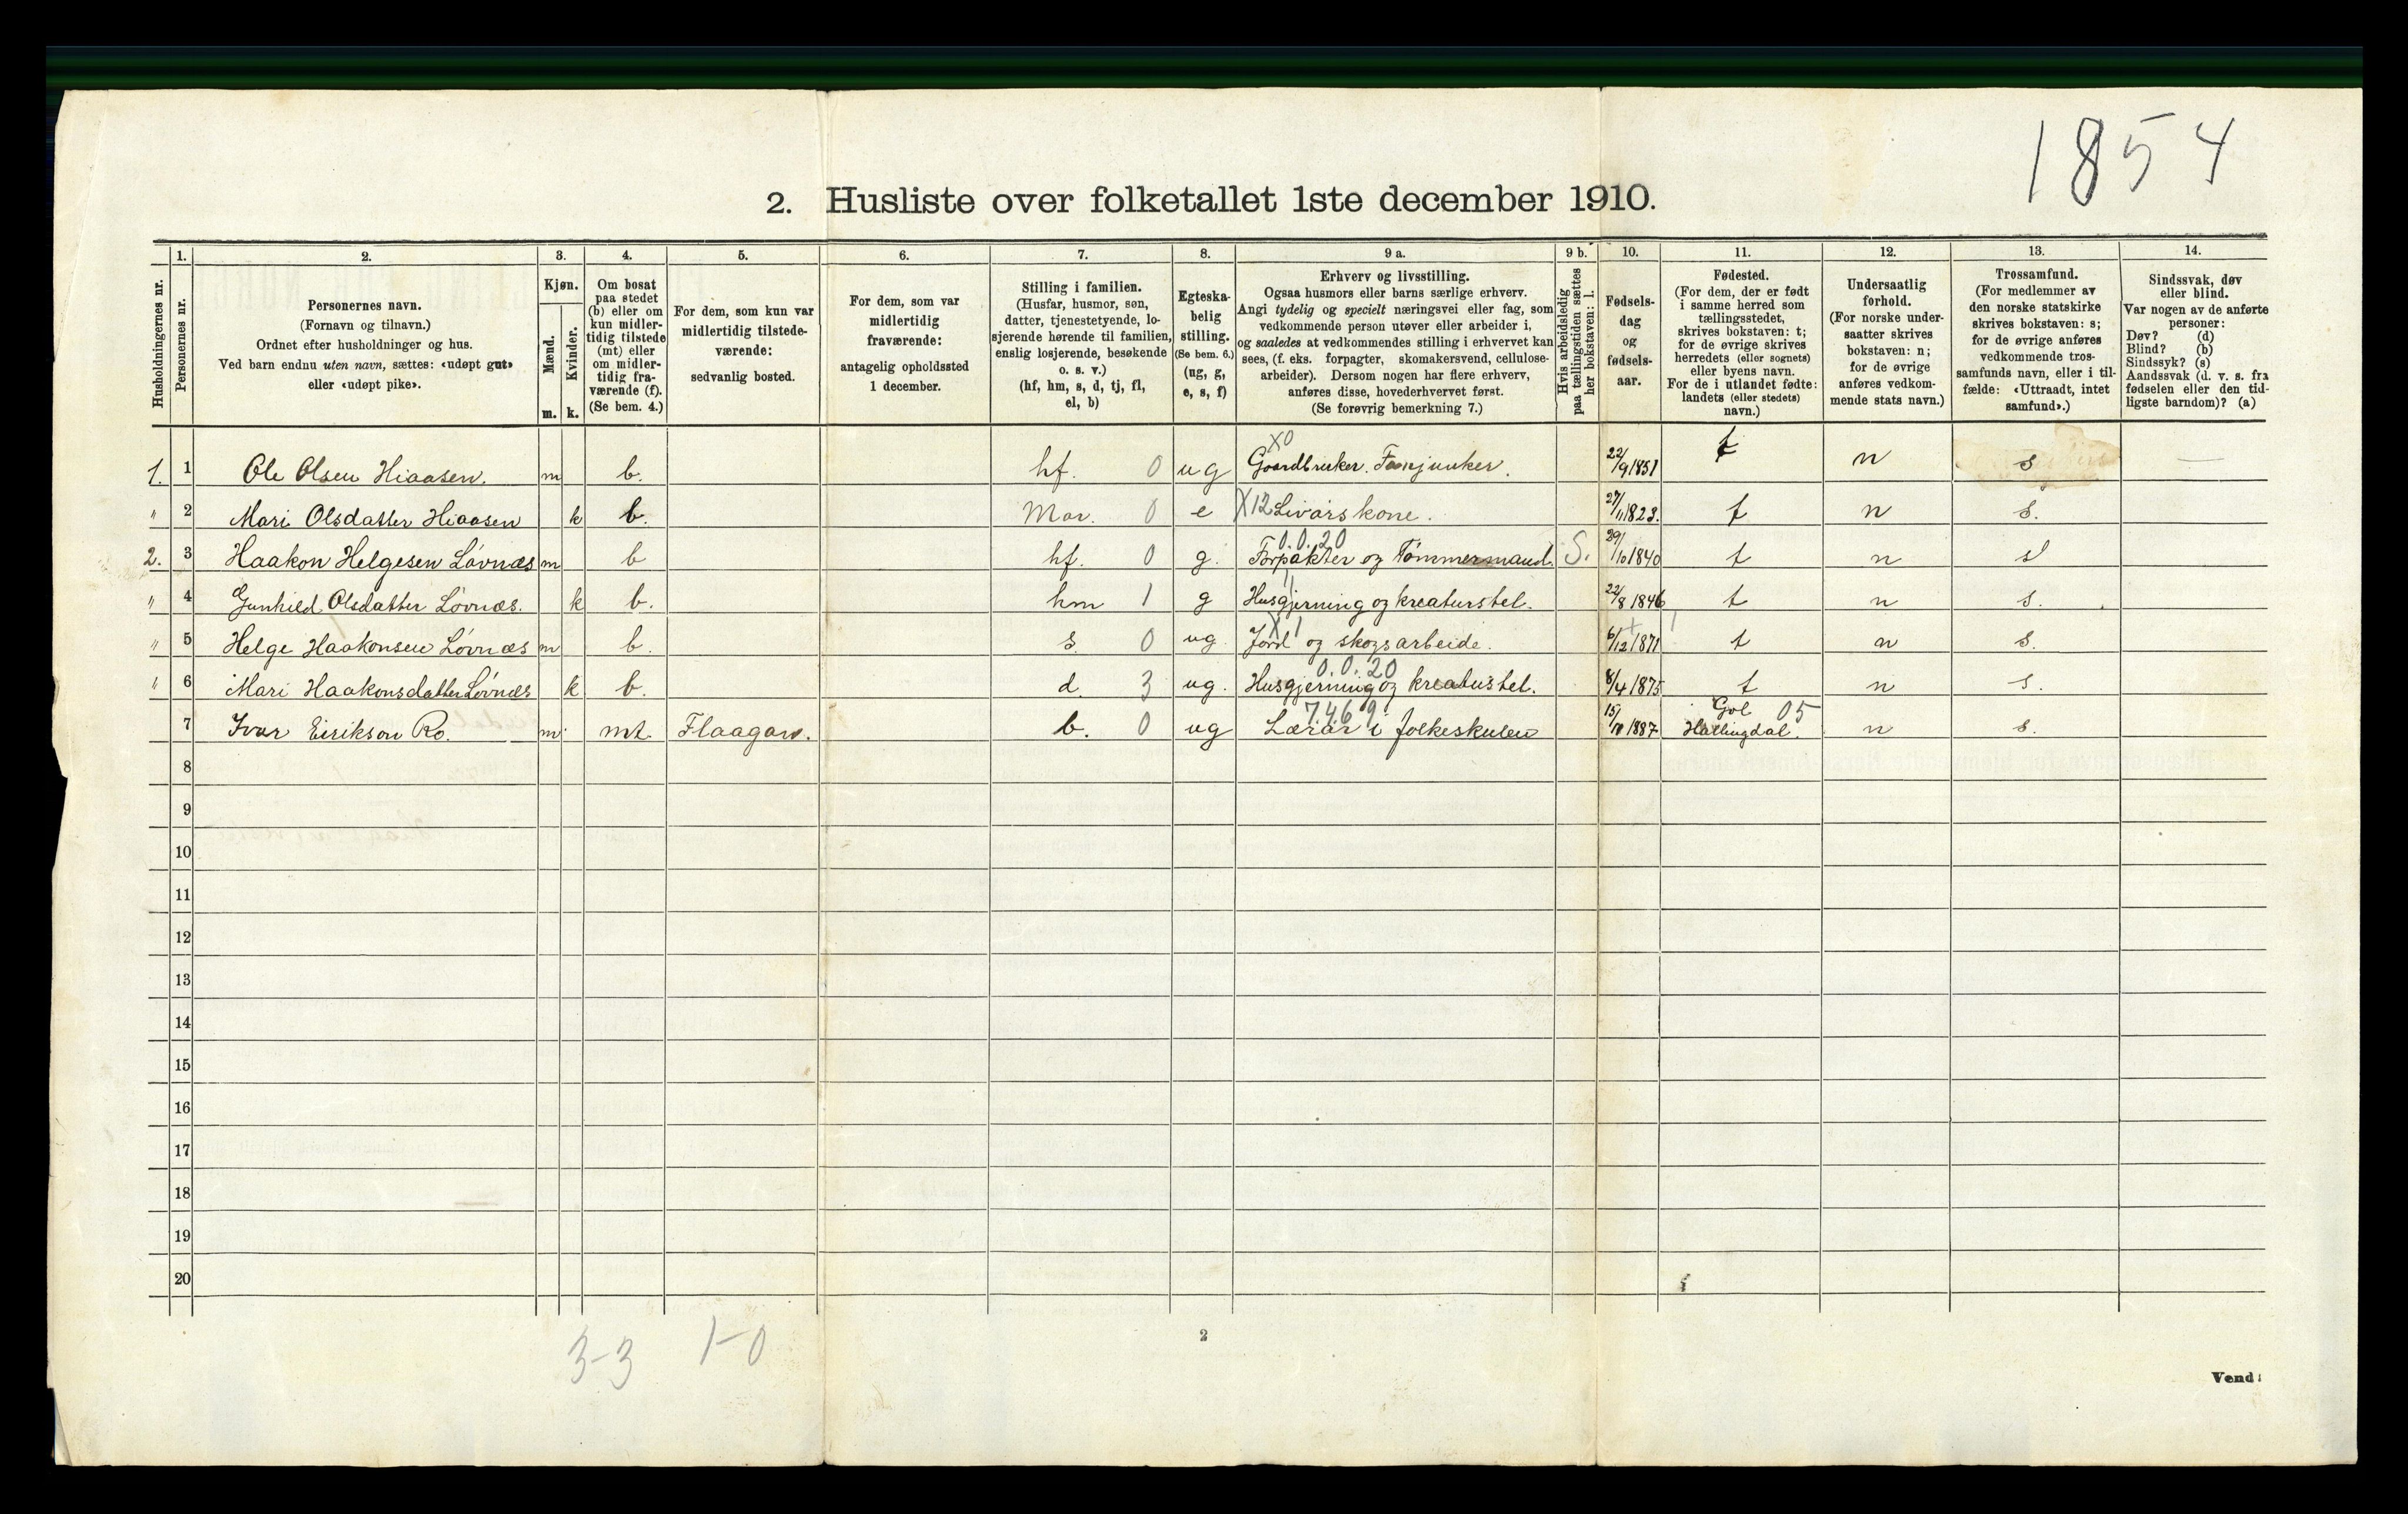 1854
2. Husliste over folketallet 1ste december 1910.
Husholdningernes nr.
1.
Personernes nr.
2.
Personernes navn.
(Fornavn og tilnavn.)
Ordnet efter husholdninger og hus.
Ved barn endnu uten navn, sættes: «udøpt gut»
eller «udøpt pike».
3.
Kjøn.
Mænd.
m.
Kvinder.
k.
4.
Om bosat
paa stedet
(b) eller om
kun midler-
tidig tilstede
(mt) eller
om midler-
tidig fra-
værende (f).
(Se bem. 4.)
5.
For dem, som kun var
midlertidig tilstede-
værende:
sedvanlig bosted.
6.
For dem, som var
midlertidig
fraværende:
antagelig opholdssted
1 december.
7.
Stilling i familien.
(Husfar, husmor, søn,
datter, tjenestetyende, lo-
sjerende hørende til familien,
enslig losjerende, besøkende
o. s. v.)
(hf, hm, s, d, tj, fl,
el, b)
8.
Egteska-
belig
stilling.
(Se bem. 6.)
(ug, g,
e, s, f)
9 a.
Erhverv og livsstilling.
Ogsaa husmors eller barns særlige erhverv.
Angi tydelig og specielt næringsvei eller fag, som
vedkommende person utøver eller arbeider i,
og saaledes at vedkommendes stilling i erhvervet kan
sees, (f. eks. forpagter, skomakersvend, cellulose-
arbeider). Dersom nogen har flere erhverv,
anføres disse, hovederhvervet først.
(Se forøvrig bemerkning 7.)
9 b.
Hvis arbeidsledig
paa tællingstiden sættes
her bokstaven: l.
10.
Fødsels-
dag
og
fødsels-
aar.
11.
Fødested.
(For dem, der er født
i samme herred som
tællingsstedet,
skrives bokstaven: t;
for de øvrige skrives
herredets (eller sognets)
eller byens navn.
For de i utlandet fødte:
landets (eller stedets)
navn.)
12.
Undersaatlig
forhold.
(For norske under-
saatter skrives
bokstaven: n;
for de øvrige
anføres vedkom-
mende stats navn.)
13.
Trossamfund.
(For medlemmer av
den norske statskirke
skrives bokstaven: s;
for de øvrige anføres
vedkommende tros-
samfunds navn, eller i til-
fælde: «Uttraadt, intet
samfund».)
14.
Sindssvak, døv
eller blind.
Var nogen av de anførte
personer:
Døv? (d)
Blind? (b)
Sindssyk? (s)
Aandssvak (d. v. s. fra
fødselen eller den tid-
ligste barndom)? (a)
X0
1. 1 Ole Olsen Hiaasen. m b. hf. 0 ug Gaardbruker. Fanejunker. 22/9 1851 t n s —
" 2 Mari Olsdatter Hiaasen k b. Mor. 0 e X12 Livørskone. 27/11 1823. t n s.
0.0.20
2. 3 Haakon Helgesen Løvnæs m b hf. 0 g. Forpakter og Tømmermand. S. 29/10 1840 t n s
" 4 Gunhild Olsdatter Løvnæs. k b. hm 1 g Husgjerning og kreaturstel. 22/8 1846 t n s.
X1
" 5 Helge Haakonsen Løvnæs m b. s. 0 ug Jord og skogsarbeide. 6/12 1871 t n s.
0.0.20
" 6 Mari Haakonsdatter Løvnæs k b. d. 3 ug. Husgjerning og kreaturstel. 8/4 1875 t n s.
7.4.6 9 Gol 05
7 Ivar Eirikson Ro. m mt. Flaagan. b. 0 ug Lærar i folkeskulen 1887 Hallingdal. n s.
8
9
10
11
12
13
14
15
16
17
18
19
20
3-3 1-0
2
Vend!